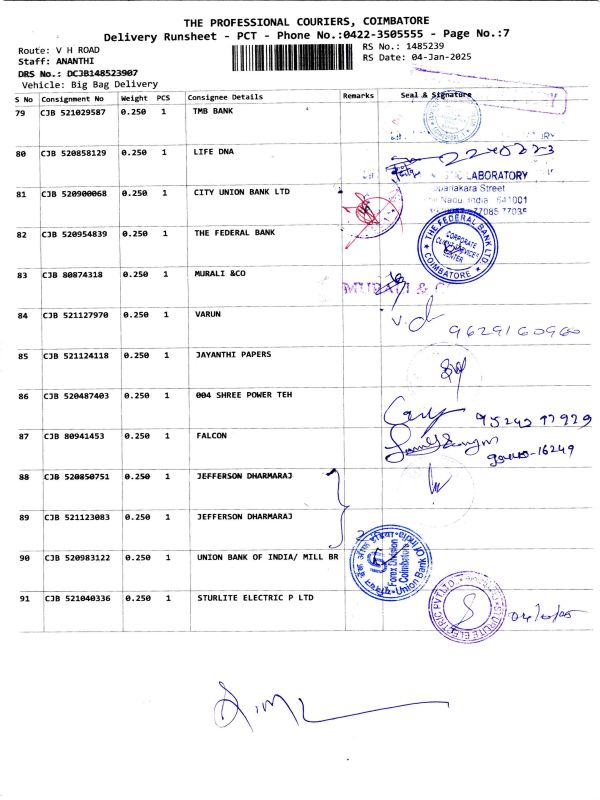 THE PROFESSIONAL COURIERS, COIMBATORE
Delivery Runsheet - PCT - Phone No.:0422-3505555 - Page No.:7
Route: V H ROAD RS No.: 1485239
Staff: ANANTHI RS Date: 04-Jan-2025
DRS No.: DCJB148523907
Vehicle: Big Bag Delivery
S No Consignment No Weight PCS Consignee Details Remarks Seal & Signature
79 CJB 521029587 0.250 1 TMB BANK
80 CJB 520858129 0.250 1 LIFE DNA
LABORATORY
81 CJB 520900068 0.250 1 CITY UNION BANK LTD
Street
India 641001
82 CJB 520954839 0.250 1 THE FEDERAL BANK
THE FEDERAL BANK LTD.
CORPORATE
CLIENT SERVICES
CENTER
COIMBATORE
83 CJB 80874318 0.250 1 MURALI &CO
84 CJB 521127970 0.250 1 VARUN
85 CJB 521124118 0.250 1 JAYANTHI PAPERS
86 CJB 520487403 0.250 1 004 SHREE POWER TEH
87 CJB 80941453 0.250 1 FALCON
88 CJB 520850751 0.250 1 JEFFERSON DHARMARAJ
89 CJB 521123083 0.250 1 JEFFERSON DHARMARAJ
90 CJB 520983122 0.250 1 UNION BANK OF INDIA/ MILL BR
Forex Division
Coimbatore
Union Bank
91 CJB 521040336 0.250 1 STURLITE ELECTRIC P LTD